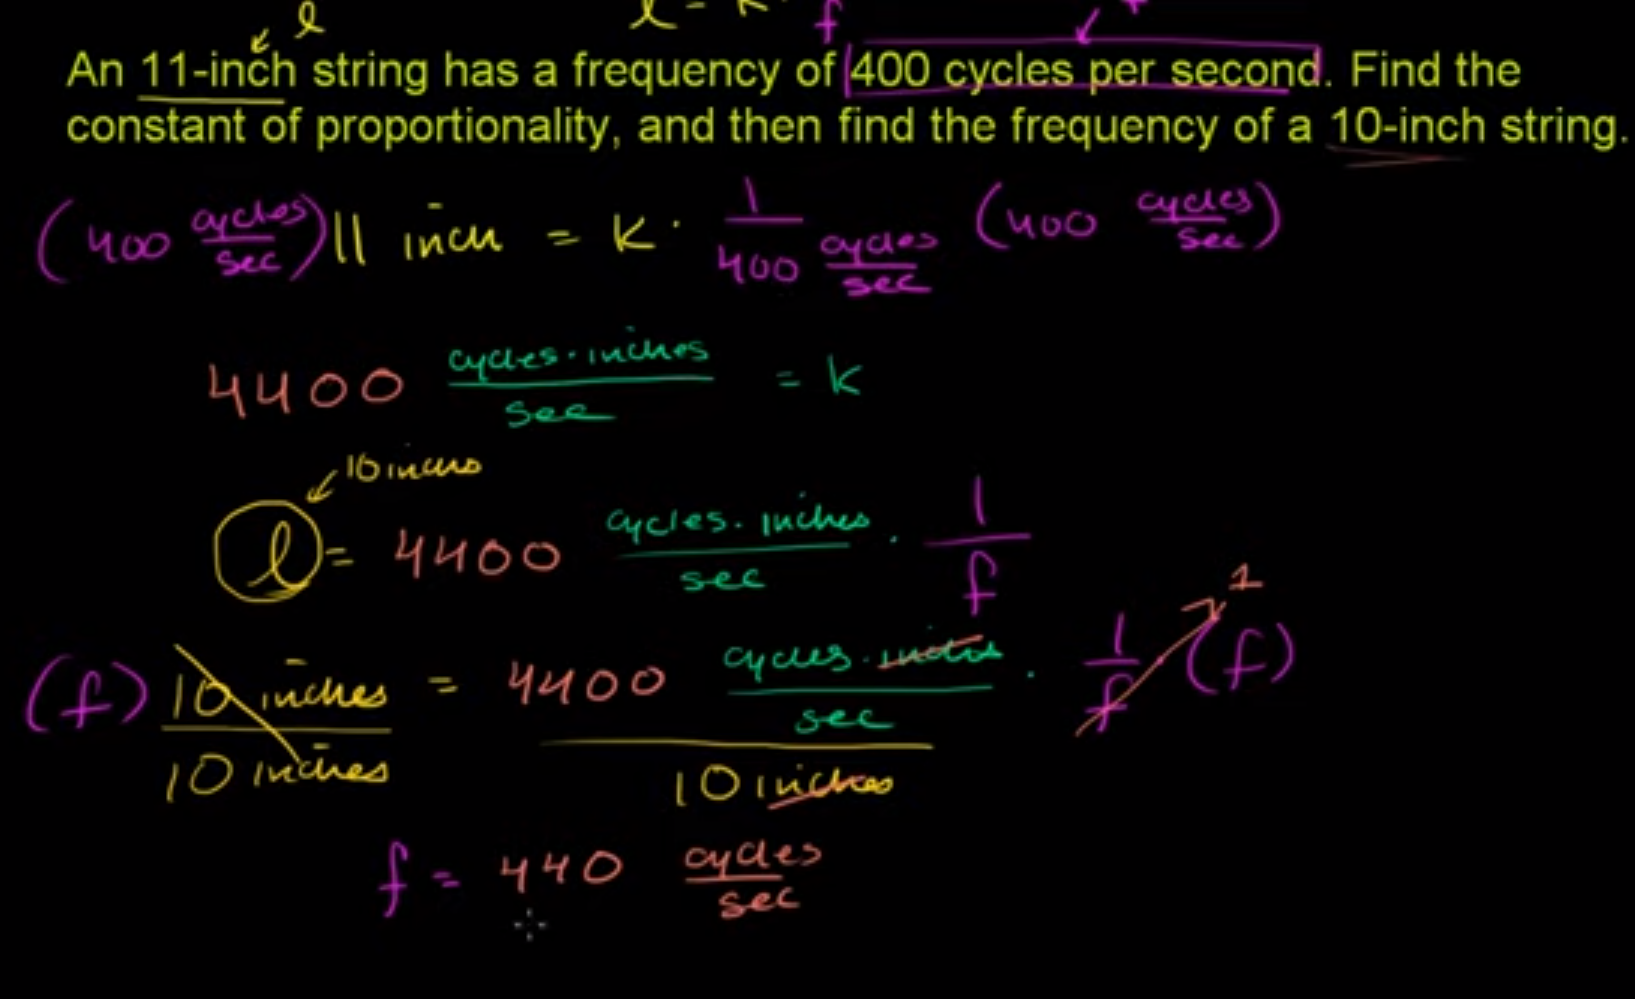 l l = k · f
An 11-inch string has a frequency of 400 cycles per second. Find the
constant of proportionality, and then find the frequency of a 10-inch string.
(400 cycles/sec) 11 inch = k · 1/(400 cycles/sec) (400 cycles/sec)
4400 cycles·inches/sec = k
10 inches
l = 4400 cycles·inches/sec · 1/f
1
(f) 10 inches/10 inches = 4400 cycles·inches/sec/10 inches · 1/f (f)
f = 440 cycles/sec